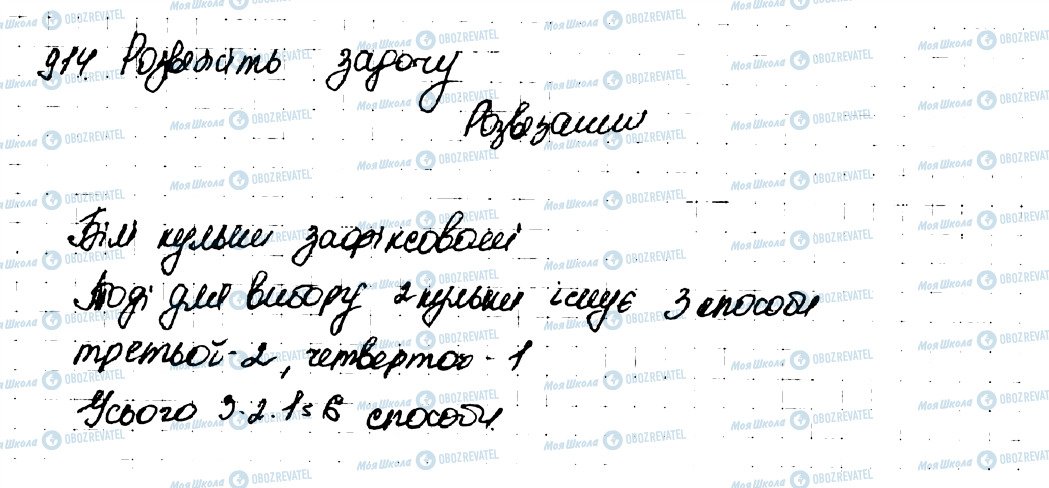 914. Розвяжіть задачу
Розвязання
Білі кульки зафіксовані
Тоді для вибору 2 кульки існує 3 способи
третьої - 2, четвертої - 1
Усього 3·2·1=6 способи